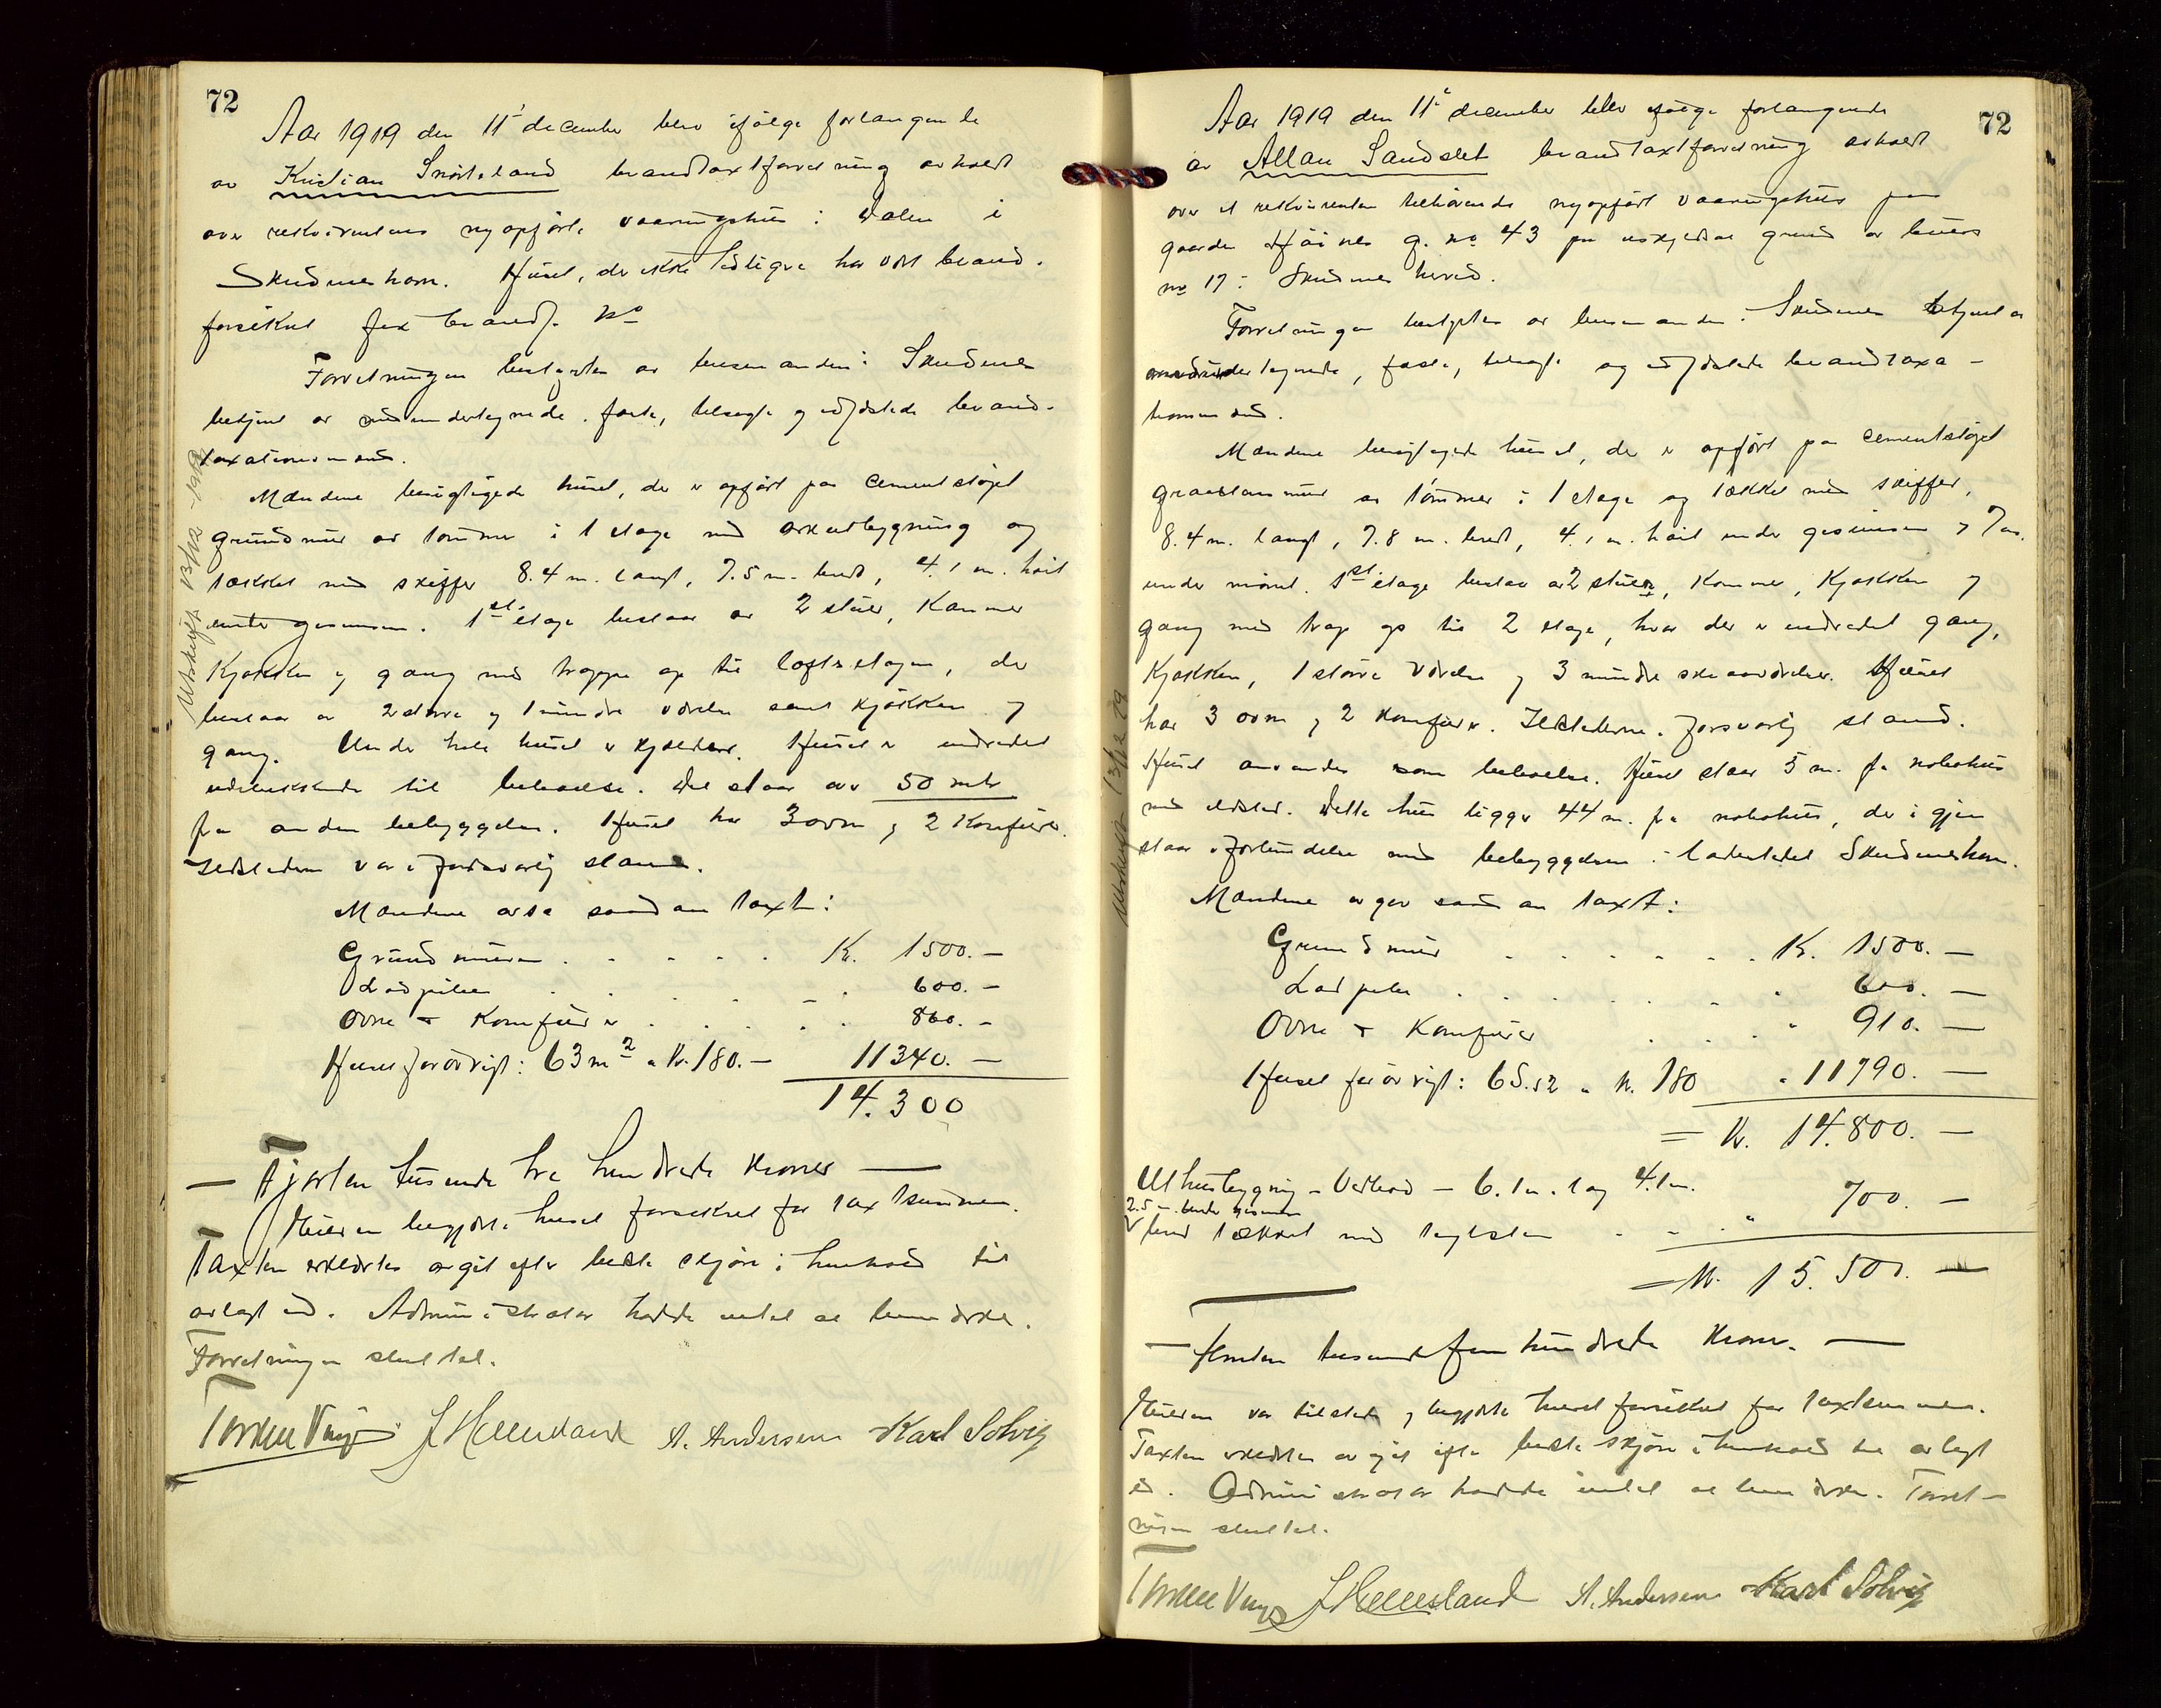 72
Aar 1919 den 11' december blev ifölge forlangende
av Kristian Snörteland brandtaxtforretning avholdt
over rekvirentens nyopförte vaaningshus i Dalen i
Skudeneshavn. Huset, der ikke tidligere har vært brand-
forsikret fik brandf. No
Forretningen bestyrtes av lensmanden i Skudenes
betjent av medundertegnede, faste, tilsagte og edfæstede brand-
taxationsmænd.
Mændene besigtigede huset, der er opfört paa cementstöpt
grundmur av tömmer i 1 etage med arkutbygning og
tækket med skiffer 8.4 m. langt, 7.5 m. bredt, 4.1 m. höit
under gesimsen. 1ste etage bestaar av 2 stuer, kammer
kjökken og gang med trappe op til loftsetagen, der
bestaar av 2 större og 1 mindre værelse samt kjökken og
gang. Under hele huset er kjælder. Huset er indredet
udelukkende til beboelse. Det staar over 50 mtr
fra anden bebyggelse. Huset har 3 ovne og 2 komfurer.
Ildstederne var i forsvarlig stand.
Mændene avga saadan taxt:
Grundmuren . . . . . Kr. 1500.—
Ladpiben . . . . . 600.—
Ovne + Komfurer . . . . . 860.—
Huset forövrigt: 63 m2 a Kr. 180.— 11340.—
14.300
— Fjorten tusende tre hundrede kroner —
Eieren begjærte huset forsikret for taxtsummen.
Taxten erklærtes avgit efter bedste skjön i henhold til
avlagt ed. Administrator hadde intet at bemærke.
Forretningen sluttet.
Torkel Vinje J Helleland A. Andersen Karl Solvig
Utskrift 13/12 - 1919
72
Aar 1919 den 11' december blev ifölge forlangende
av Allan Sandslet brandtaxtforretning avholdt
over et rekvirenten tilhörende nyopfört vaaningshus paa
gaarden Höines g. no 43 paa uskyldsat grund av bruks
no 17 i Skudenes herred.
Forretningen bestyrtes av lensmanden i Skudenes betjent av
medundertegnede, faste, tilsagte og edfæstede brandtaxa-
tionsmænd.
Mændene besigtigede huset, der er opfört paa cementstöpt
graastensmur av tömmer i 1 etage og tækket med skiffer,
8.4 m. langt, 7.8 m. bredt, 4.1 m. höit under gesimsen og 7 m.
under mönet. 1ste etage bestaar av 2 stuer, kammer, kjökken og
gang med trap op til 2 etage, hvor der er indredet gang,
kjökken, 1 större værelse og 3 mindre skraaværelser. Huset
har 3 ovne og 2 komfurer. Ildstederne i forsvarlig stand.
Huset anvendes som beboelse. Huset staar 5 m. fra nabohus
med ildsted. Dette hus ligger 44 m. fra nabohus, der igjen
staar i forbindelse med bebyggelsen i ladestedet Skudeneshavn.
Mændene avgav saadan taxt:
Grundmur . . . . . . Kr. 1500.—
Ladpibe . . . . . . " 600.—
Ovne + Komfurer . . . . " 910.—
Huset forövrigt: 65.52 a kr. 180 " 11790.—
= Kr. 14.800.—
Uthusbygning - Vedbod - 6.1 m. lag 4.1 m.
2.5 m. under gesimsen
bred tækket med taglsten . . . " 700.—
= Kr. 15.500.—
— femten tusende fem hundrede kroner. —
Eieren var tilstede og begjærte huset forsikret for taxtsummen.
Taxten erklærtes avgit efter bedste skjön i henhold til avlagt
ed. Administrator hadde intet at bemærke. Forret-
ningen sluttet.
Torkel Vinje J Helleland A. Andersen Karl Solvig
Utskrift 13/12 19